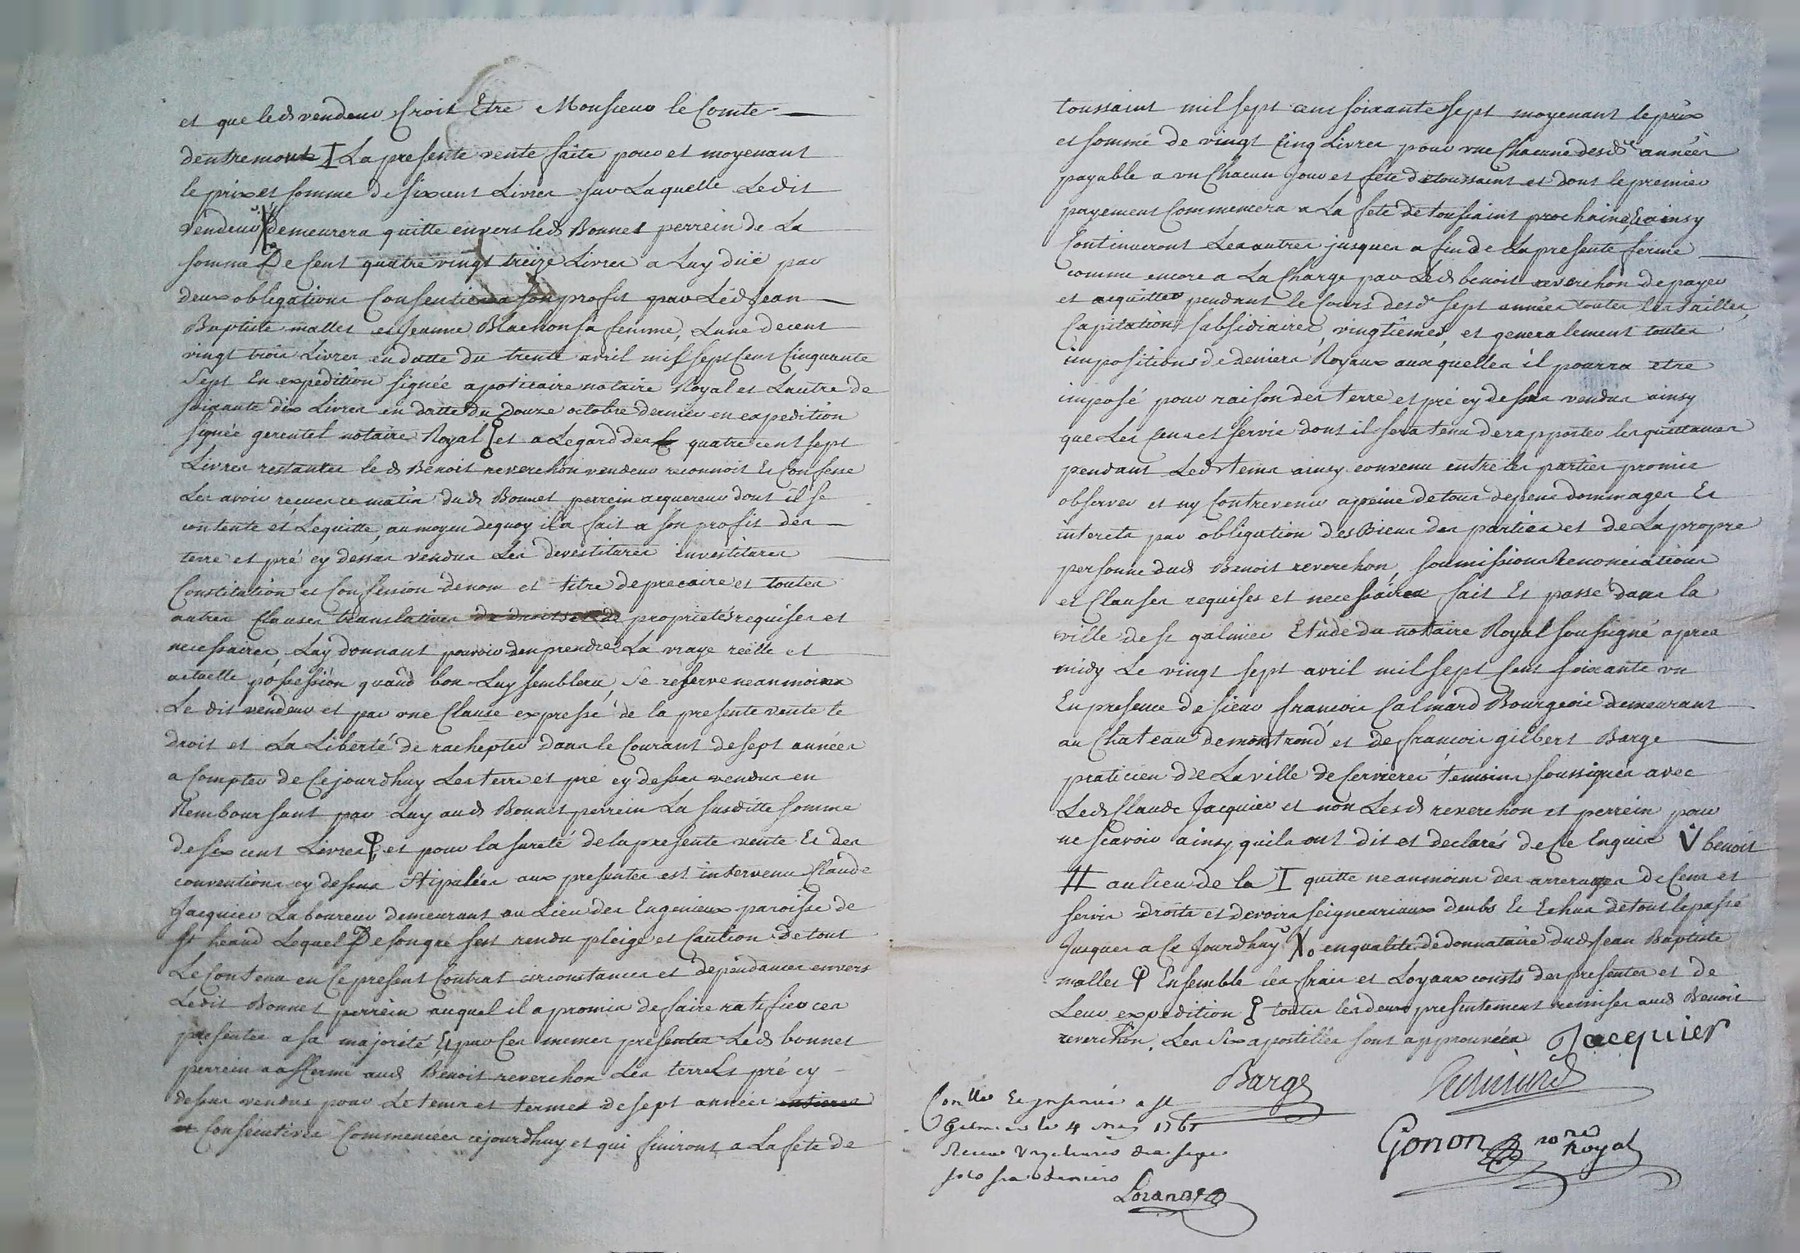 et que led vendeur croit Etre Monsieur le Comte
dentremont I La presente vente faite pour et moyenant
le prix et somme de six cent Livres sur Laquelle Ledit
vendeur X demeurera quitte envers led Bonnet perrein de La
somme De Cent quatre vingt treize Livres a Luy duë par
deux obligations Consenties a son profit par Led Jean
Baptiste mallet et Jeanne Blachon sa femme, Lune de cent
vingt trois Livres en datte du trente avril mil sept Cent Cinquante
Sept En expedition signée apoticaire notaire Royal et Lautre de
soixante dix Livres en datte du douze octobre dernier en expedition
signée gerentet notaire Royal et a Legard des quatre cent sept
Livres restantes le d Benoit reverchon vendeur reconnoit Et Confesse
Les avoir reçues ce matin dud Bonnet perrein acquereur dont il se
contente et Lequitte, au moyen dequoy il a fait a son profit des
terre et pré cy dessus vendus Les devestitures investitures
Constitution et Confession de nom et titre de precaire et toutes
autres Clauses translatives de droits et de proprietés requises et
necessaires, Luy donnant pouvoir den prendre La vraye reëlle et
actuelle possession quand bon Luy semblera, se reserve neanmoins
Le dit vendeur et par une Clause expresse de la presente vente le
droit et La Liberté de rachepter dans le Courant de sept années
a Compter de Cejourdhuy Les terre et pré cy dessus vendus en
Remboursant par Luy aud Bonnet perrein La susditte somme
de six cent Livres, et pour la sureté de la presente vente Et des
conventions cy dessus stipulées aux presentes est intervenu Claude
Jacquier Laboureur demeurant au Lieu des Engenieux paroisse de
St heand Lequel De son gré sest rendu pleige et Caution de tout
Le Contenu en Ce present Contrat circonstances et dépendances envers
Ledit Bonnet perrein auquel il a promis de faire ratifier ces
presentes a sa majorité, Et par Ces memes presentes Led bonnet
perrein a affermé aud Benoit reverchon Les terre et pré cy
dessus vendus pour Le tems et terme de sept années entieres
et Consecutives Commencées cejourdhuy et qui finiront a La fete de
toussaint mil sept cent soixante sept moyenant le prix
et somme de vingt Cinq Livres pour une Chacune desd années
payable a un Chacun Jour et fete de toussaint et dont le premier
payement Commencera a La fete de toussaint prochaine, Et ainsy
Continueront Les autres jusques a fin de La presente ferme
comme encore a La Charge par Led benoit reverchon de payer
et acquitter pendant le Cours desd sept années toutes les tailles,
Capitations, subsidiaires, vingtièmes, et generalement toutes
impositions de deniers Royaux auxquelles il pourra etre
imposé pour raison des terre et pré cy dessus vendus ainsy
que Les Cens et servis dont il sera tenu de rapporter les quittances
pendant Led tems ainsy convenu entre les parties promis
observer et ny Contrevenir a peine de tous depens dommages Et
interets par obligation des Biens des parties et de La propre
personne dud Benoit reverchon, soumissions Renonciations
et Clauses requises et necessaires fait Et passé dans la
ville de st galmier Etude du notaire Royal soussigné apres
midy Le vingt sept avril mil sept Cent soixante un
En presence de sieur francois Calmard Bourgeois demeurant
au Chateau de montrond et de francois gilbert Barge
praticien de La ville de Cervieres temoins soussignes avec
Led Claude Jacquier et non Lesd reverchon et perrein pour
ne scavoir ainsy quils ont dit et declarés de Ce Enquis V benoit
H au lieu de la I quitte neanmoins des arrerages de Cens et
servis droits et devoirs seigneuriaux deubs Et Echus de tout le passé
Jusques a Ce Jourdhuy X en qualité de donnataire dud Jean Baptiste
mallet φ Ensemble les frais et Loyaux couts des presentes et de
Leur expedition toutes les deux presentement remises aud Benoit
reverchon. Les six apostilles sont approuvées Jacquier
Barge Calmard
Gonon nore Royal
Conllé Et insinué a st
Galmier le 4 may 1761
Recu
Lorande